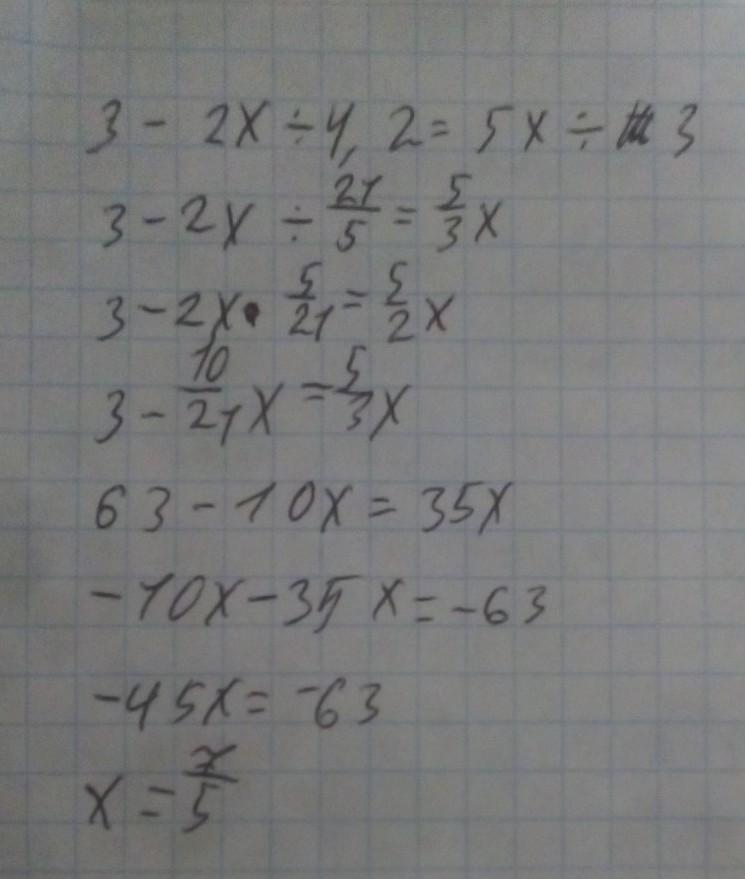 3 - 2x ÷ 4,2 = 5x ÷ 3
3 - 2x ÷ 21/5 = 5/3 x
3 - 2x • 5/21 = 5/2 x
3 - 10/21 x = 5/3 x
63 - 10x = 35x
-10x - 35x = -63
-45x = -63
x = 7/5